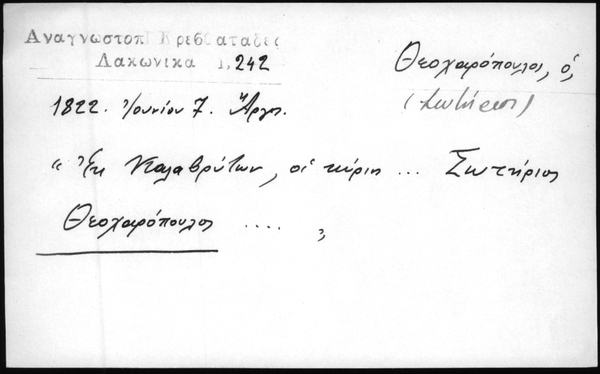 Αναγνωστοπ Κρεββαταδες
Λακωνικα 1, 242
Θεοχαρόπουλος, ὁ,
(Σωτήριος)
1822. Ἰουνίου 7. Ἄργος.
“ Ἐκ Καλαβρύτων, οἱ κύριοι ... Σωτήριος
Θεοχαρόπουλος .... ,